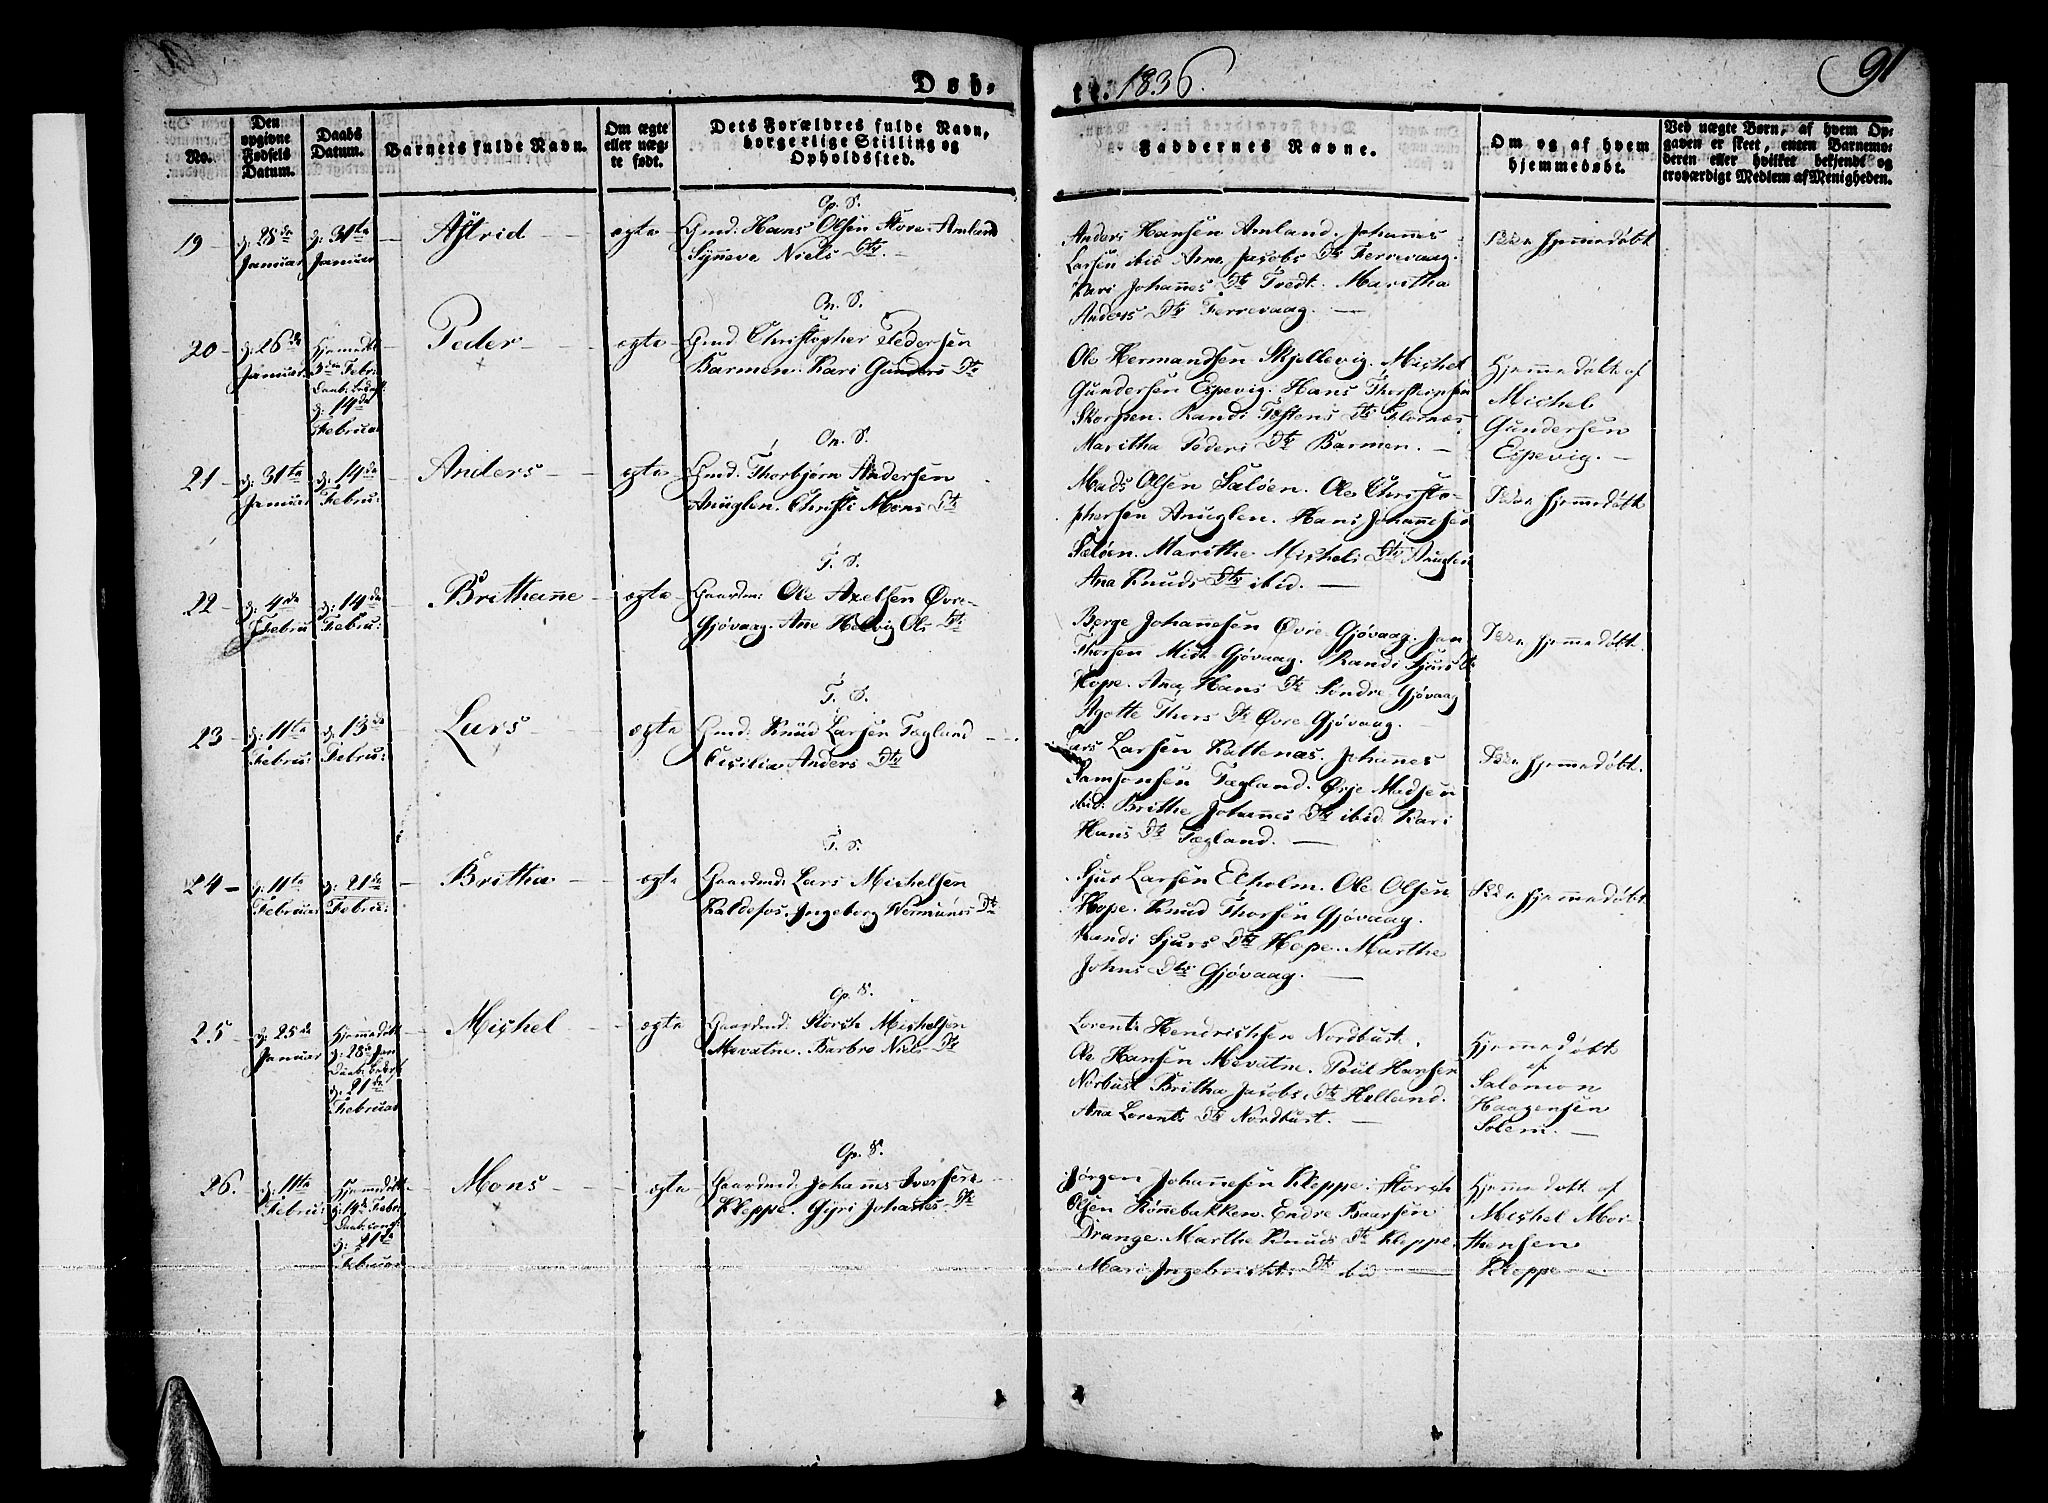 Døb-
te. 1836.
91
No.
Den opgivne Fødsels Datum.
Daabs Datum.
Barnets fulde Navn.
Om ægte eller uægte født.
Dets Forældres fulde Navn, borgerlige Stilling og Opholdssted.
Faddernes Navne.
Om og af hvem hjemmedøbt.
Ved uægte Børn, af hvem Opgaven er skeet, enten Barnemoderen eller hvilket bekjendt og troværdigt Medlem af Menigheden.
19
d: 28de
Januar
d: 31te
Januar
Astrid
ægte
Op. S.
Gmd: Hans Olsen Store-Amland
Synneva Niels Dtr.
Anders Hansen Amland. Johannes
Larsen ibid. Anna Jacobs Dtr Ferrevaag.
Kari Johannes Dtr Tvedt. Maritha
Anders Dtr Ferrevaag.
Ikke hjemmedøbt
20
d: 26de
Januar
Hjemmedøbt
3die Febr:
Daab: bekræft
d: 14de
Februar
Peder
ægte
On. S.
Gmd Christopher Pedersen
Barmen. Kari Gunders Dtr
Ole Hermandsen Skjellevig. Michel
Gundersen Espevig. Hans
Skorpen. Randi
Maritha Peders Dtr Barmen.
Hjemmedøbt af
Michel
Gundersen
Espevig.
21
d: 31te
Januar
d: 14de
Febru:
Anders
ægte
On. S.
Gmd: Thorbjørn Andersen
Anuglen. Christi Mons Dtr
Mads Olsen Seløen. Ole Christo-
phersen Anuglen. Hans Johannesen
Seløen. Marithe Michels Dtr Anuglen
Ana Knuds Dtr ibid.
Ikke hjemmedøbt
22
d: 4de
Febru
d: 14de
Febru:
Brithanne
ægte
T. S.
Gaardm: Ole Axelsen Øvre-
Gjøvaag. Ane Helvig Ols Dtr
Berge Johannesen Øvre-Gjøvaag. Jan
Thorsen Midt-Gjøvaag. Randi Sjurs Dtr
Hope. Ana Hans Dtr Søndre-Gjøvaag
Agotte Thors Dtr Øvre-Gjøvaag.
Ikke hjemmedøbt
23
d: 11te
Febru:
d: 13de
Febru:
Lars
ægte
T. S.
Gmd: Knud Larsen Tægland
Cecilia Anders Dtr
Lars Larsen Kattenæs. Johannes
Samsonsen Tægland. Ørje Madsen
ibid. Brithe Johannes Dtr ibid. Kari
Hans Dtr Tægland.
Ikke hjemmedøbt.
24
d: 11te
Februar
d: 21de
Febru:
Britha
ægte
T. S.
Gaardmd: Lars Michelsen
Kaldefos. Ingeborg Wermunds Dtr
Sjur Larsen Eeholm. Ole Olsen
Hope. Knud Thorsen Gjøvaag.
Randi Sjurs Dtr Hope. Marthe
Johns Dtr Gjøvaag.
Ikke hjemmedøbt
25
d: 25de
Januar
Hjemmedøbt
d: 28de Jan
Daab: bekræft
d: 21de
Februar
Michel
ægte
Op. S.
Gaardmd: Storch Michelsen
Mevatne. Barbro Niels Dtr
Lorents Hendrichsen Nordbust.
Ole Hansen Mevatne. Poul Hansen
Norbust. Britha Jacobs Dtr Helland.
Ana Lorents Dtr Nordbust.
Hjemmedøbt
af
Salomon
Haagensen
Solem.
26.
d: 11te
Febru:
Hjemmedøbt
d: 14de Febr
Daab: conf:
d: 21de
Februar
Mons
ægte
Op. S.
Gaardmd: Johannes Iversen
Kleppe. Gyri Johannes Dtr
Jørgen Johannesen Kleppe. Storch
Olsen Rønnebakken. Endre Baarsen
Drange. Marthe Knuds Dtr Kleppe.
Mari Ingebricts Dtr ibid
Hjemmedøbt af
Michel Mor-
thensen
Kleppe